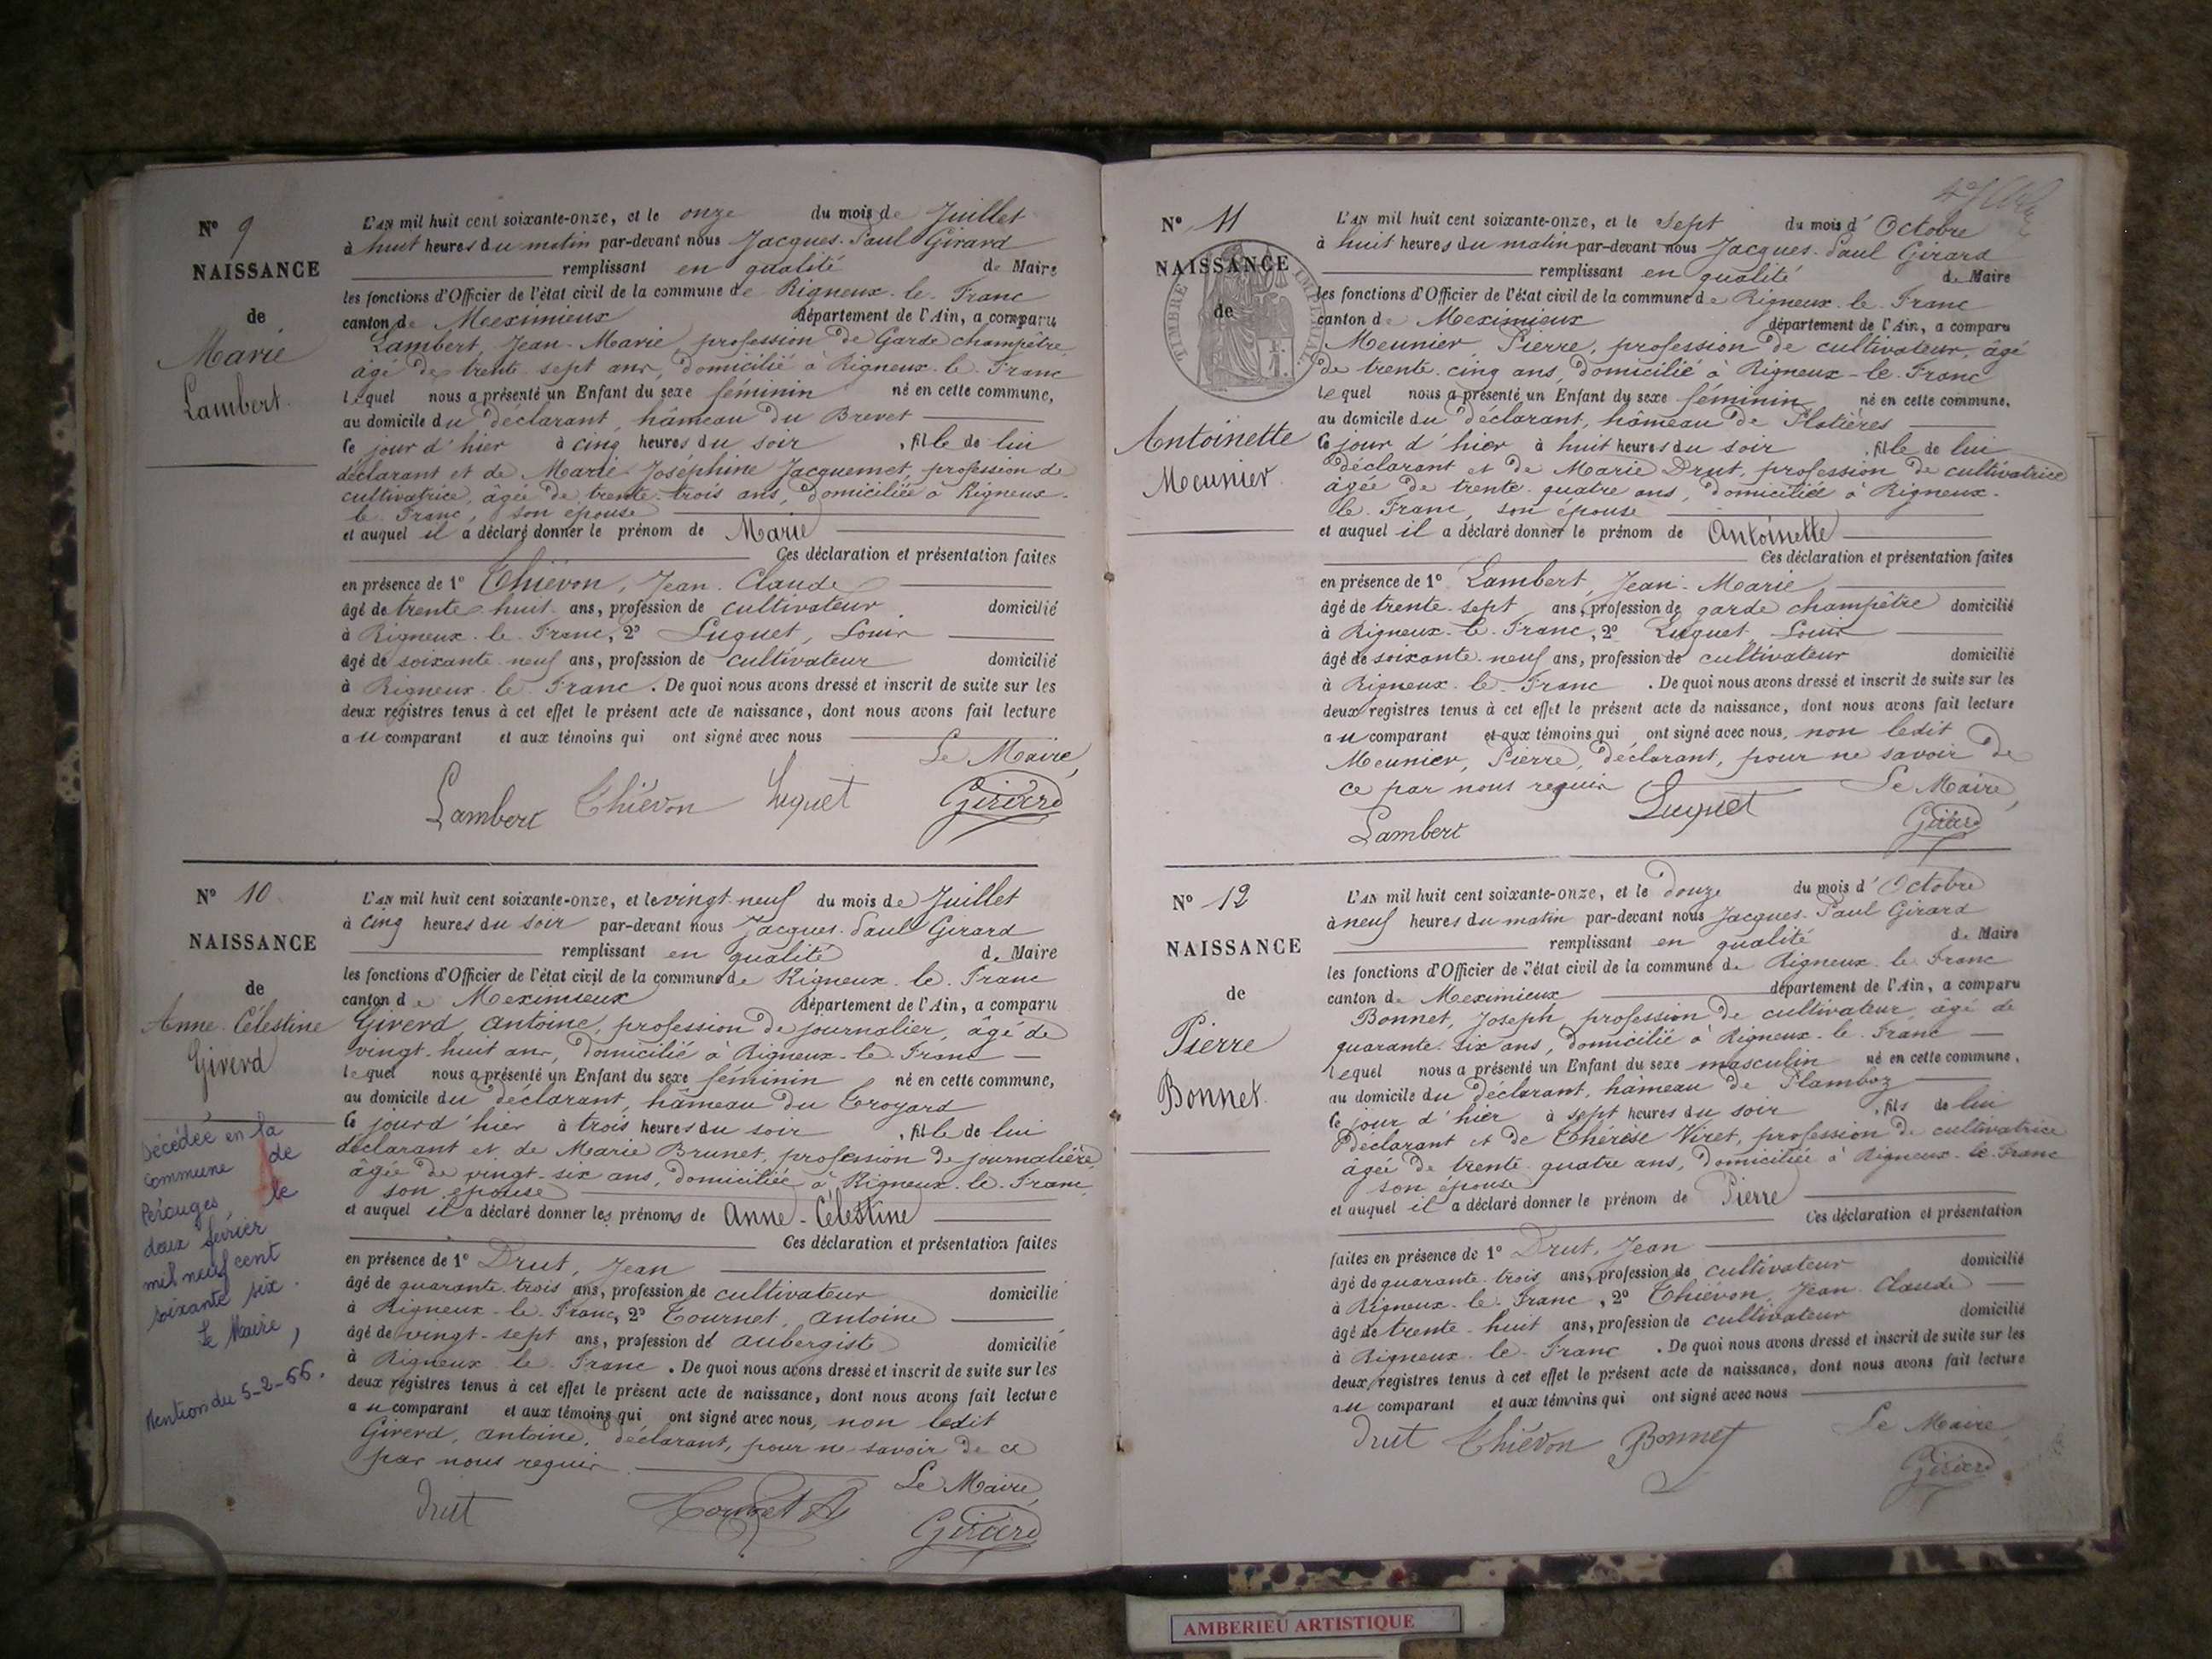 N° 9
NAISSANCE
de
Marie
Lambert.
L'AN mil huit cent soixante-onze, et le onze du mois de Juillet
à huit heures du matin par-devant nous Jacques-Paul Girard
remplissant en qualité de Maire
les fonctions d'Officier de l'état civil de la commune de Rigneux-le-Franc
canton de Meximieux département de l'Ain, a comparu
Lambert, Jean-Marie, profession de Garde champêtre,
âgé de trente-sept ans, domicilié à Rigneux-le-Franc
lequel nous a présenté un Enfant du sexe féminin né en cette commune,
au domicile du déclarant, hâmeau du Brevet
Ce jour d'hier à cinq heures du soir, fille de lui
déclarant et de Marie-Joséphine Jacquemet, profession de
cultivatrice, âgée de trente-trois ans, domiciliée à Rigneux-
le-Franc, son épouse
et auquel il a déclaré donner le prénom de Marie
Ces déclaration et présentation faites
en présence de 1° Thiévon, Jean-Claude
âgé de trente-huit ans, profession de cultivateur domicilié
à Rigneux-le-Franc, 2° Luquet, Louis
âgé de soixante-neuf ans, profession de cultivateur domicilié
à Rigneux-le-Franc. De quoi nous avons dressé et inscrit de suite sur les
deux registres tenus à cet effet le présent acte de naissance, dont nous avons fait lecture
au comparant et aux témoins qui ont signé avec nous
Le Maire,
Lambert Thiévon Luquet Girard
N° 10
NAISSANCE
de
Anne-Célestine
Giverd
Décédée en la
commune de
Pérouges, le
deux février
mil neuf cent
soixante six.
Le Maire,
Mention du 5-2-66.
L'AN mil huit cent soixante-onze, et le vingt-neuf du mois de Juillet
à cinq heures du soir par-devant nous Jacques-Paul Girard
remplissant en qualité de Maire
les fonctions d'Officier de l'état civil de la commune de Rigneux-le-Franc
canton de Meximieux département de l'Ain, a comparu
Giverd, Antoine, profession de journalier, âgé de
vingt-huit ans, domicilié à Rigneux-le-Franc
lequel nous a présenté un Enfant du sexe féminin né en cette commune,
au domicile du déclarant, hâmeau du Troyard
Ce jour d'hier à trois heures du soir, fille de lui
déclarant et de Marie Brunet, profession de journalière,
âgée de vingt-six ans, domiciliée à Rigneux-le-Franc,
son épouse
et auquel il a déclaré donner les prénoms de Anne-Célestine
Ces déclaration et présentation faites
en présence de 1° Drut, Jean
âgé de quarante-trois ans, profession de cultivateur domicilié
à Rigneux-le-Franc, 2° Tournet, Antoine
âgé de vingt-sept ans, profession de aubergiste domicilié
à Rigneux-le-Franc. De quoi nous avons dressé et inscrit de suite sur les
deux registres tenus à cet effet le présent acte de naissance, dont nous avons fait lecture
au comparant et aux témoins qui ont signé avec nous, non ledit
Giverd, Antoine, déclarant, pour ne savoir de ce
par nous requis
Le Maire,
Drut Tournet A Girard
N° 11
NAISSANCE
de
TIMBRE IMPERIAL
Antoinette
Meunier.
L'AN mil huit cent soixante-onze, et le Sept du mois d'Octobre
à huit heures du matin par-devant nous Jacques-Paul Girard
remplissant en qualité de Maire
les fonctions d'Officier de l'état civil de la commune de Rigneux-le-Franc
canton de Meximieux département de l'Ain, a comparu
Meunier, Pierre, profession de cultivateur, âgé
de trente-cinq ans, domicilié à Rigneux-le-Franc
lequel nous a présenté un Enfant du sexe féminin né en cette commune,
au domicile du déclarant, hâmeau de Platières
Ce jour d'hier à huit heures du soir, fille de lui
déclarant et de Marie Drut, profession de cultivatrice
âgée de trente-quatre ans, domiciliée à Rigneux-
le-Franc, son épouse
et auquel il a déclaré donner le prénom de Antoinette
Ces déclaration et présentation faites
en présence de 1° Lambert, Jean-Marie
âgé de trente-sept ans, profession de garde champêtre domicilié
à Rigneux-le-Franc, 2° Luquet, Louis
âgé de soixante-neuf ans, profession de cultivateur domicilié
à Rigneux-le-Franc. De quoi nous avons dressé et inscrit de suite sur les
deux registres tenus à cet effet le présent acte de naissance, dont nous avons fait lecture
au comparant et aux témoins qui ont signé avec nous, non ledit
Meunier, Pierre, déclarant, pour ne savoir de
ce par nous requis Le Maire,
Lambert Luquet Girard
N° 12
NAISSANCE
de
Pierre
Bonnet.
L'AN mil huit cent soixante-onze, et le douze du mois d'Octobre
à neuf heures du matin par-devant nous Jacques-Paul Girard
remplissant en qualité de Maire
les fonctions d'Officier de l'état civil de la commune de Rigneux-le-Franc
canton de Meximieux département de l'Ain, a comparu
Bonnet, Joseph, profession de cultivateur, âgé de
quarante-six ans, domicilié à Rigneux-le-Franc
lequel nous a présenté un Enfant du sexe masculin né en cette commune,
au domicile du déclarant, hâmeau de Plamboz
Ce jour d'hier à sept heures du soir, fils de lui
déclarant et de Thérèse Viret, profession de cultivatrice
âgée de trente-quatre ans, domiciliée à Rigneux-le-Franc
son épouse
et auquel il a déclaré donner le prénom de Pierre
Ces déclaration et présentation
faites en présence de 1° Drut, Jean
âgé de quarante-trois ans, profession de cultivateur domicilié
à Rigneux-le-Franc, 2° Thiévon, Jean-Claude
âgé de trente-huit ans, profession de cultivateur domicilié
à Rigneux-le-Franc. De quoi nous avons dressé et inscrit de suite sur les
deux registres tenus à cet effet le présent acte de naissance, dont nous avons fait lecture
au comparant et aux témoins qui ont signé avec nous
Le Maire,
Drut Thiévon Bonnet Girard
AMBERIEU ARTISTIQUE